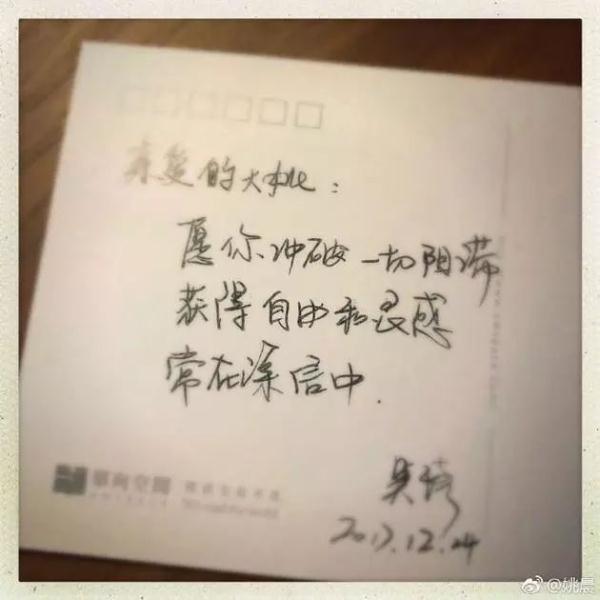 亲爱的大:
愿你冲破一切阻滞
获得自由和灵感
常在深信中.
吴琦
2017.12.24
單向空間
@姚晨